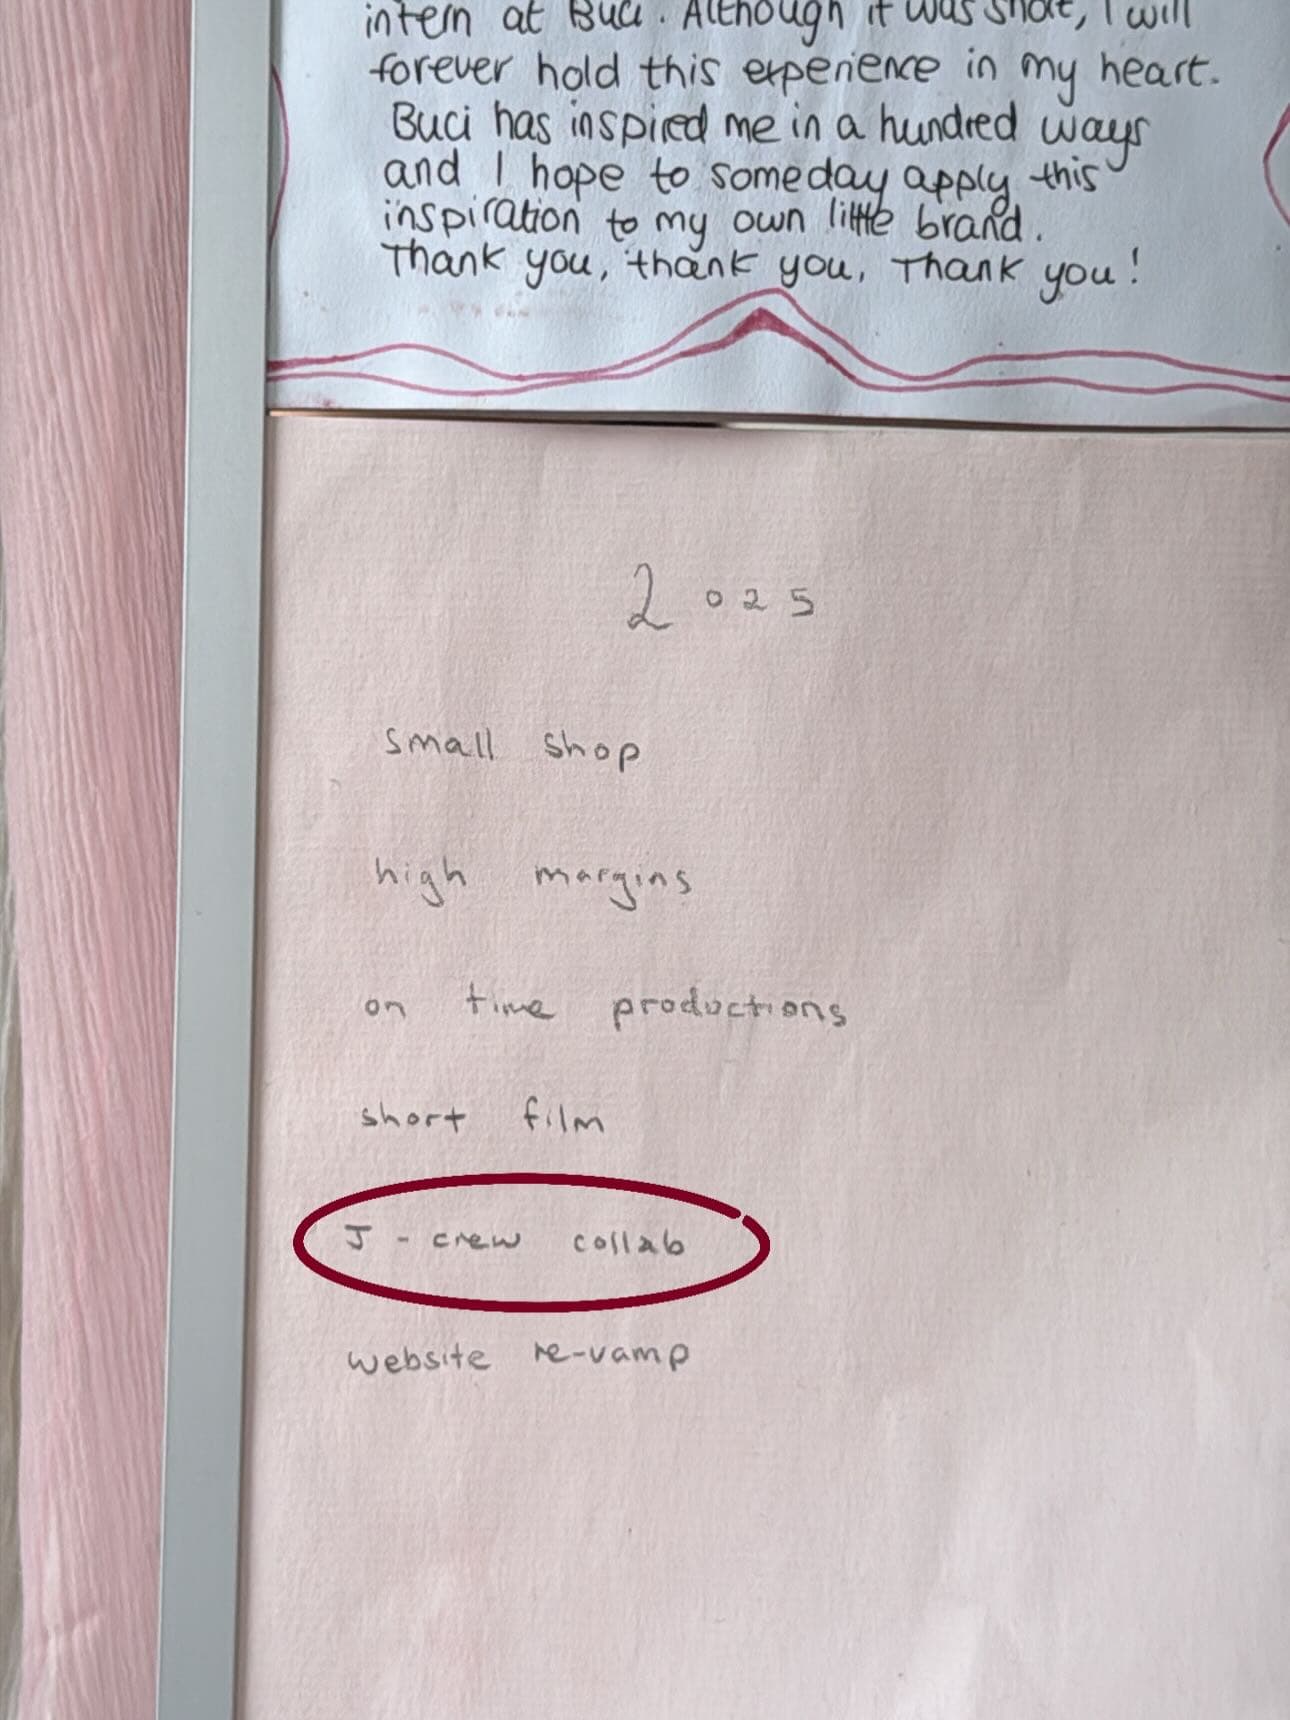 intern at Buci. Although it was short, I will
forever hold this experience in my heart.
Buci has inspired me in a hundred ways
and I hope to someday apply this
inspiration to my own little brand.
Thank you, thank you, Thank you!
2025
small shop
high margins
on time productions
short film
J-crew collab
website re-vamp